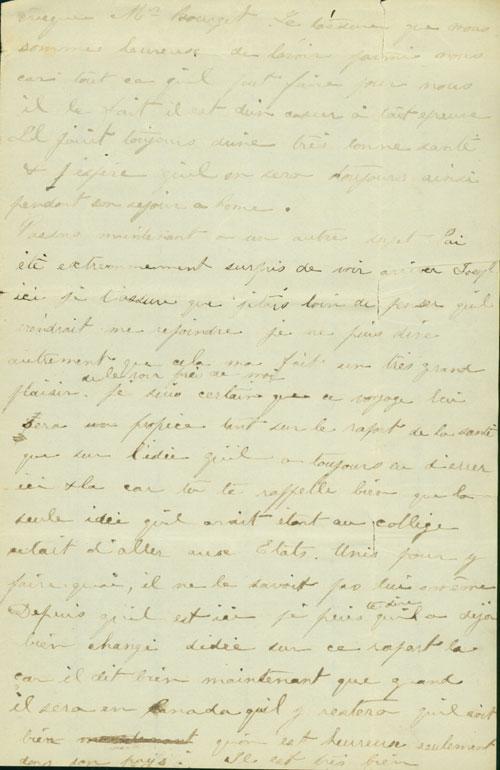 évêque Mgr Bourget. Je t'assure que nous
sommes heureux de l'avoir parmis nous
car tout ce qu'il peut faire pour nous
il le fait il est d'un cœur à tout epreuve
Il jouit toujours d'une très bonne santé
& j'espère qu'il en sera toujours ainsi
pendant son sejour a Rome.
Passons maintenant a un autre sujet J'ai
été extremmement surpris de voir arriver Joseph
ici je t'assure que j'étais loin de penser qu'il
viendrait me rejoindre je ne puis dire
autrement que cela ma fait un très grand
de le voir près de moi
plaisir. Je suis certain que ce voyage lui
sera un propice tant sur le raport de la santé
que sur l'idée qu'il a toujours eu d'errer
ici & la car tu te rappelle bien que la
seule idée qu'il avait étant au collège
etait d'aller aux Etats. Unis pour y
faire quoi, il ne le savait pas lui même
te dire
Depuis qu'il est ici je puis qu'il a déjà
bien changé didée sur ce raport la
car il dit bien maintenant que quand
il sera en Canada qu'il y restera qu'il voit
bien qu'on est heureux seulement
dans son pays. Il est très bien